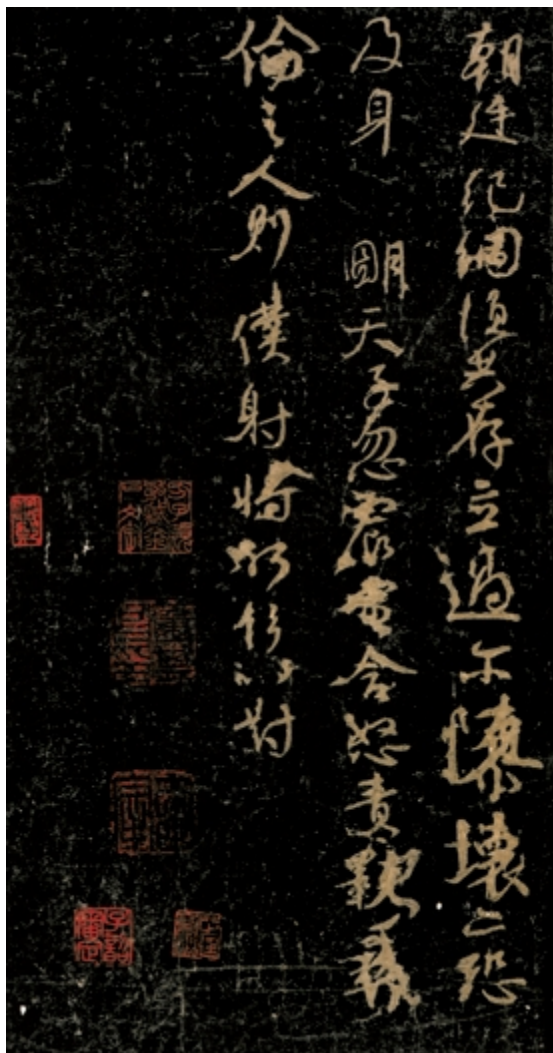 朝廷紀綱須共存立過尓隳壞亦恐
及身 明天子忽震電含怒責斁彝
倫之人則僕射將何辭以對